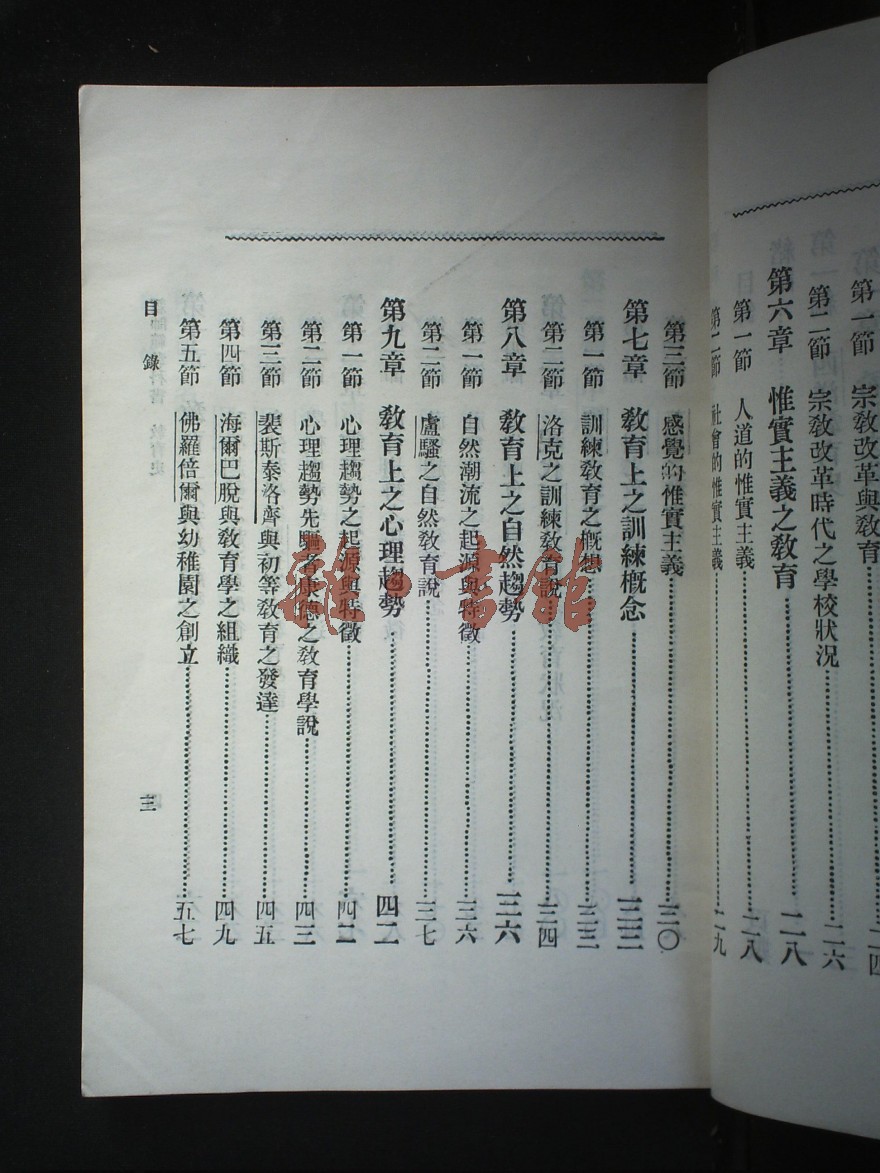 第一節 宗教改革與教育 二四
第二節 宗教改革時代之學校狀況 二六
第六章 惟實主義之教育 二八
第一節 人道的惟實主義 二八
第二節 社會的惟實主義 二九
第三節 感覺的惟實主義 三〇
第七章 教育上之訓練概念 三三
第一節 訓練教育之概想 三三
第二節 洛克之訓練教育說 三四
第八章 教育上之自然趨勢 三六
第一節 自然潮流之起源與特徵 三六
第二節 盧騷之自然教育說 三七
第九章 教育上之心理趨勢 四二
第一節 心理趨勢之起源與特徵 四二
第二節 心理趨勢先驅者康德之教育學說 四三
第三節 裴斯泰洛齊與初等教育之發達 四五
第四節 海爾巴脫與教育學之組織 四九
第五節 佛羅倍爾與幼稚園之創立 五七
目錄
三
雜·書館